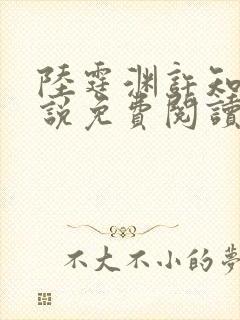 陸霆淵許知
說免費閱讀
不大不小的夢